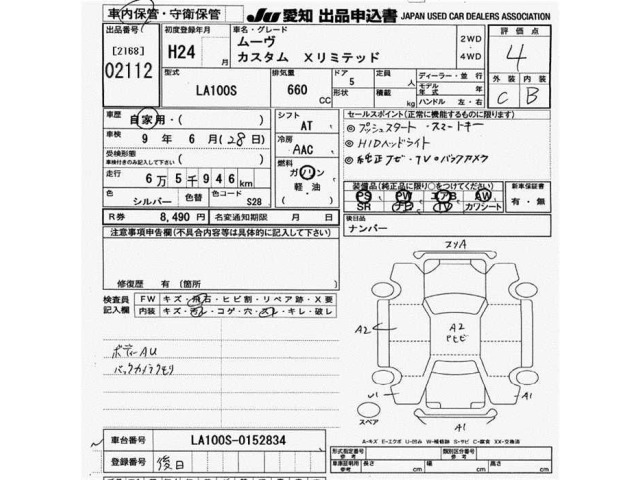 車内保管・守衛保管
JU 愛知 出品申込書 JAPAN USED CAR DEALERS ASSOCIATION
出品番号 [2168] 02112
初度登録年月 H24 月
車名・グレード ムーヴ カスタム Xリミテッド
2WD ・ 4WD
評価点 4
型式 LA100S
排気量 660 CC
ドア 5 形状
定員 人 積載 kg
ディーラー・並行
モデル年式 年
ハンドル 左・右
外装 C
内装 B
車歴 自家用・( )
車検 9年 6月(28日)
受検形態 車検付きのみ記入して下さい ( )
走行 6万5千946km
色 シルバー 色替 色コード S28
シフト AT
冷房 AAC
燃料 ガソリン 軽・油
セールスポイント(正常に機能するものに限ります)
◎プッシュスタート・スマートキー
◎HIDヘッドライト
◎純正ナビ・TV・バックカメラ
装備品(純正品に限り○をつけてください)
PS PW エアB AW
SR ナビ TV カワシート
新車保証書 有・無
R券 8,490円 名変通知期限 月 日
後日品 ナンバー
注意事項申告欄(不具合内容等は具体的に記入して下さい)
修復歴 有(箇所 )
検査員記入欄
FW キズ・飛石・ヒビ割・リペア跡・X要
内装 キズ・汚レ・コゲ・穴・スレ・キレ・破レ
ボディーAU
バックカメラクモリ
A2
A2
A1
A1
スペア
A-キズ E-エクボ U-凹み W-補修跡 S-サビ C-腐食 XX-交換済
車台番号 LA100S-0152834
登録番号 後日
形式指定番号 参考
類別区分番号 参考
車庫証明用 参考 長さ cm 幅 cm 高さ cm